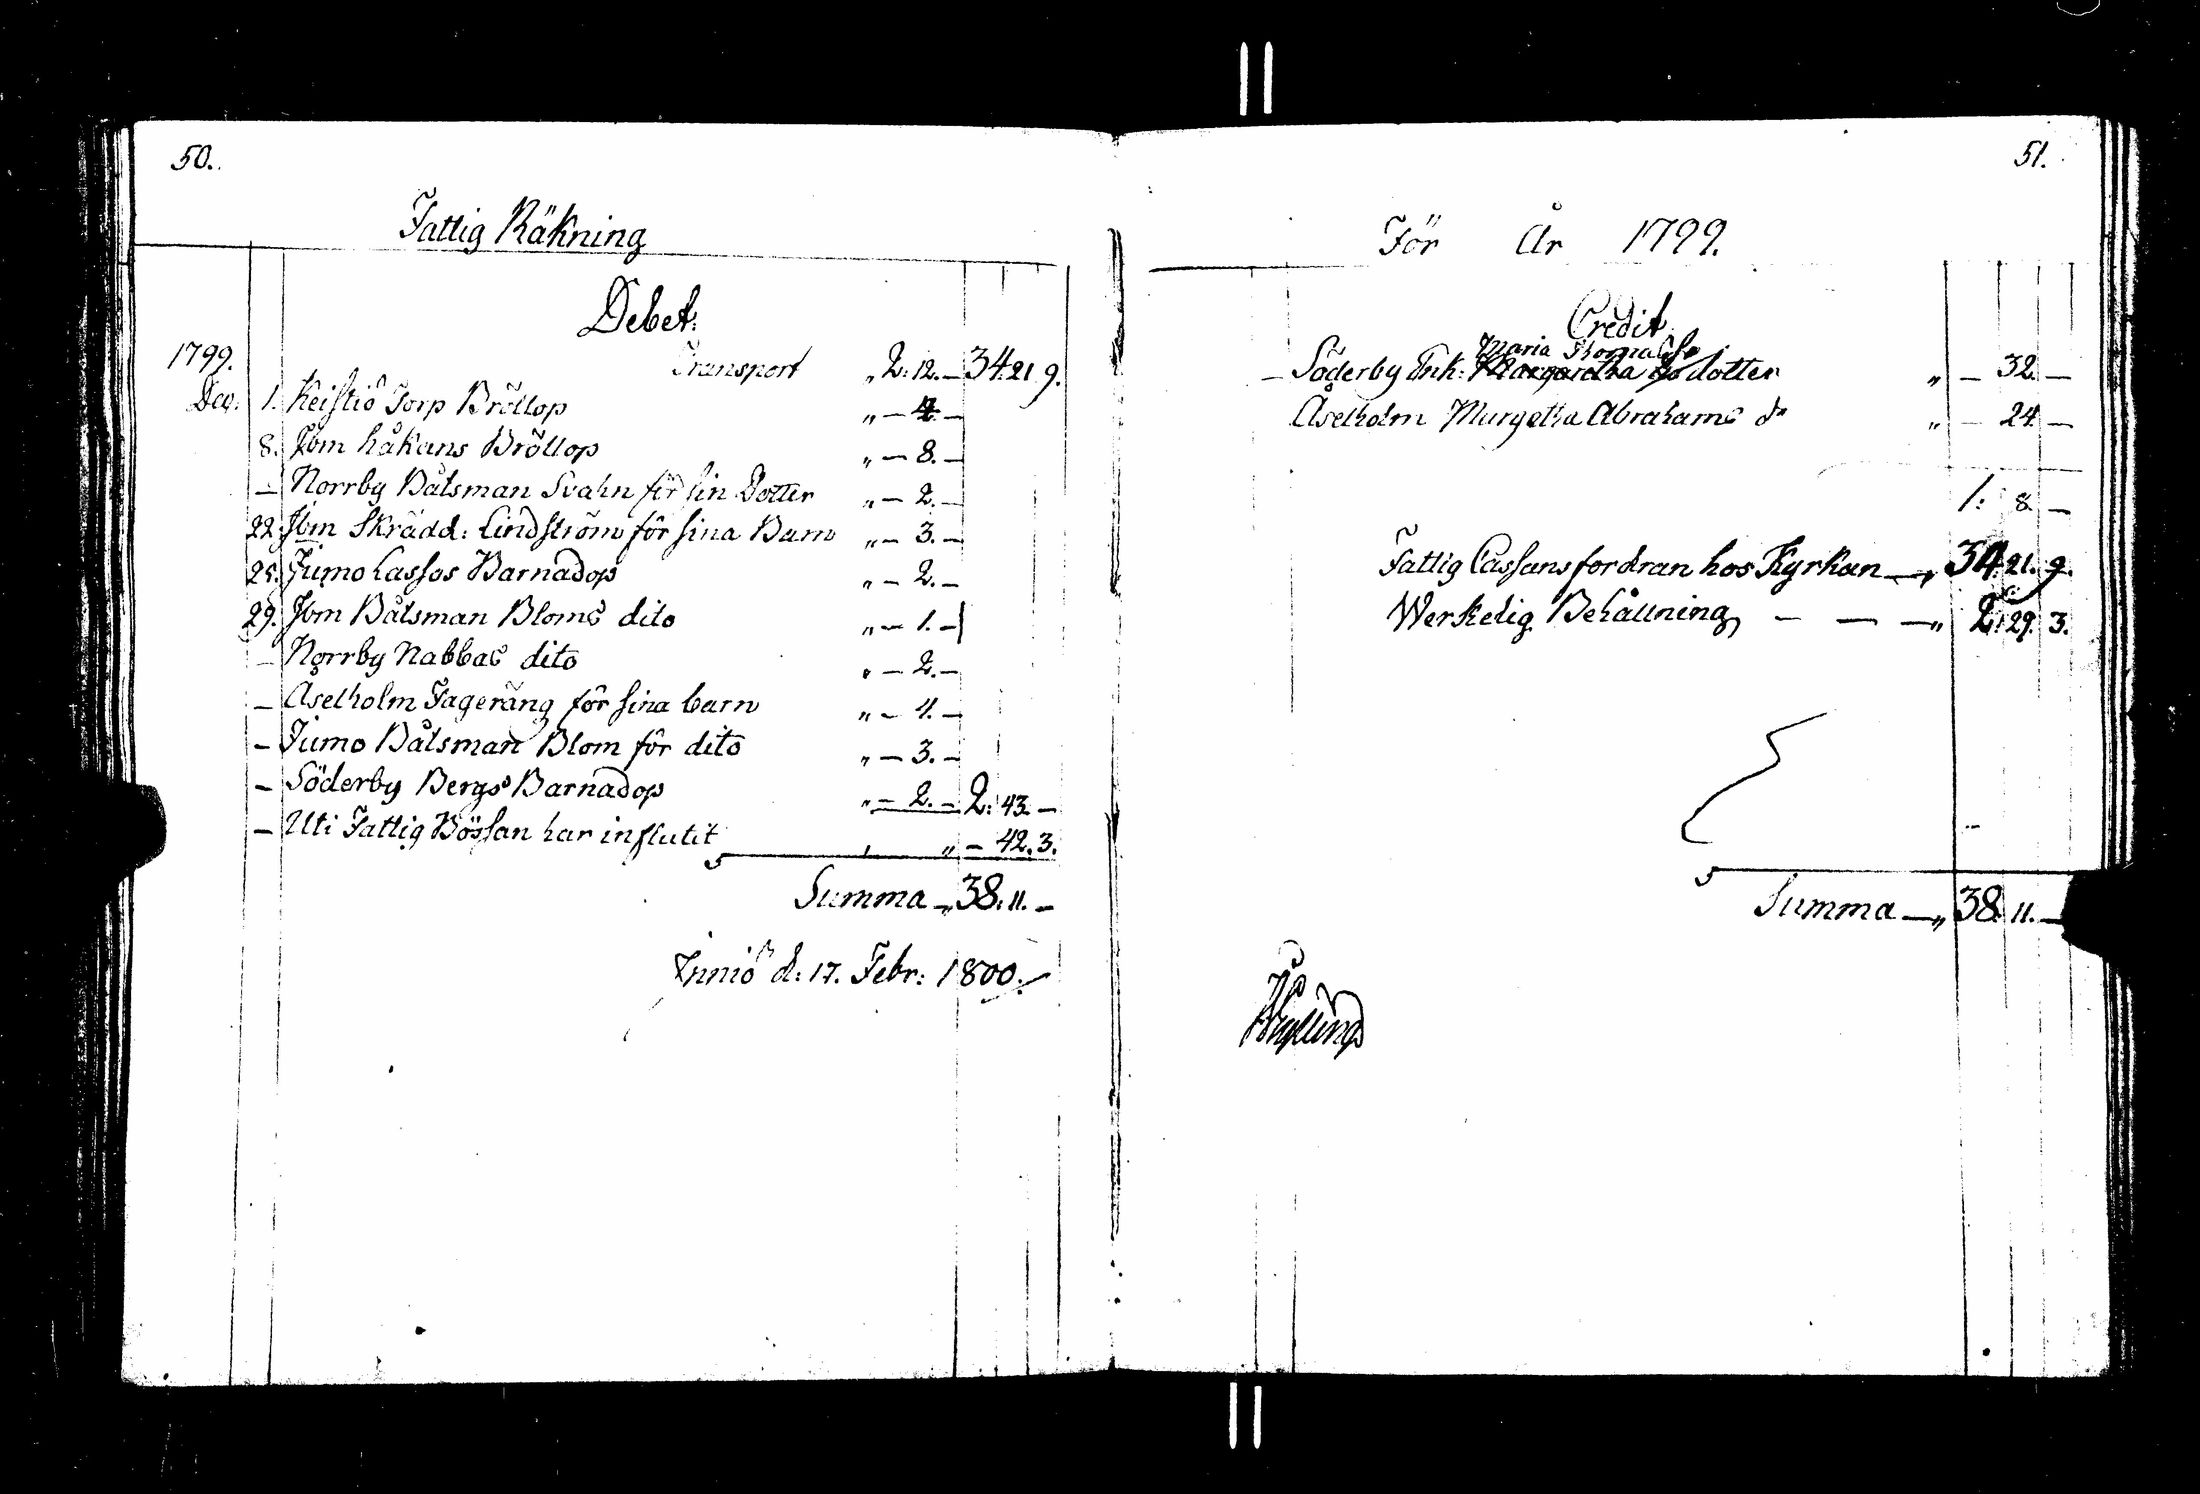 50.
Fattig Räkning
Debet.
1799. Transport „ 2: 12. — 34. 21 9.
Dec: 1. Keistiö Torp Bröllop „ — 4. —
8. Jbm håkans Bröllop „ — 8. —
— Norrby Båtsman Svahn för sin Dotter „ — 2. —
22. Jbm Skrädd: Lindström för sina Barn „ — 3. —
25. Jumo Lassos Barnadop „ — 2. —
29. Jbm Båtsman Bloms dito „ — 1. —
— Norrby Nabbas dito „ — 2. —
— Aselholm Fageräng för sina barn „ — 4. —
— Jumo Båtsman Blom för dito „ — 3. —
— Söderby Bergs Barnadop „ — 2. — 2: 43. —
— Uti Fattig Bössan har influtit „ — 42. 3.
Summa — „ 38. 11. —
Iniö d: 17. Febr: 1800.
51.
För År 1799.
Credit
Maria Thomas
— Söderby Enk: Margaretha dotter „ — 32. —
Aselholm Margetha Abrahams dr „ — 24. —
1: 8 —
Fattig Cassans fordran hos Kyrkan — „ 34. 21. 9.
Werkelig Behållning — — — „ 2: 29. 3.
Summa — „ 38. 11. —